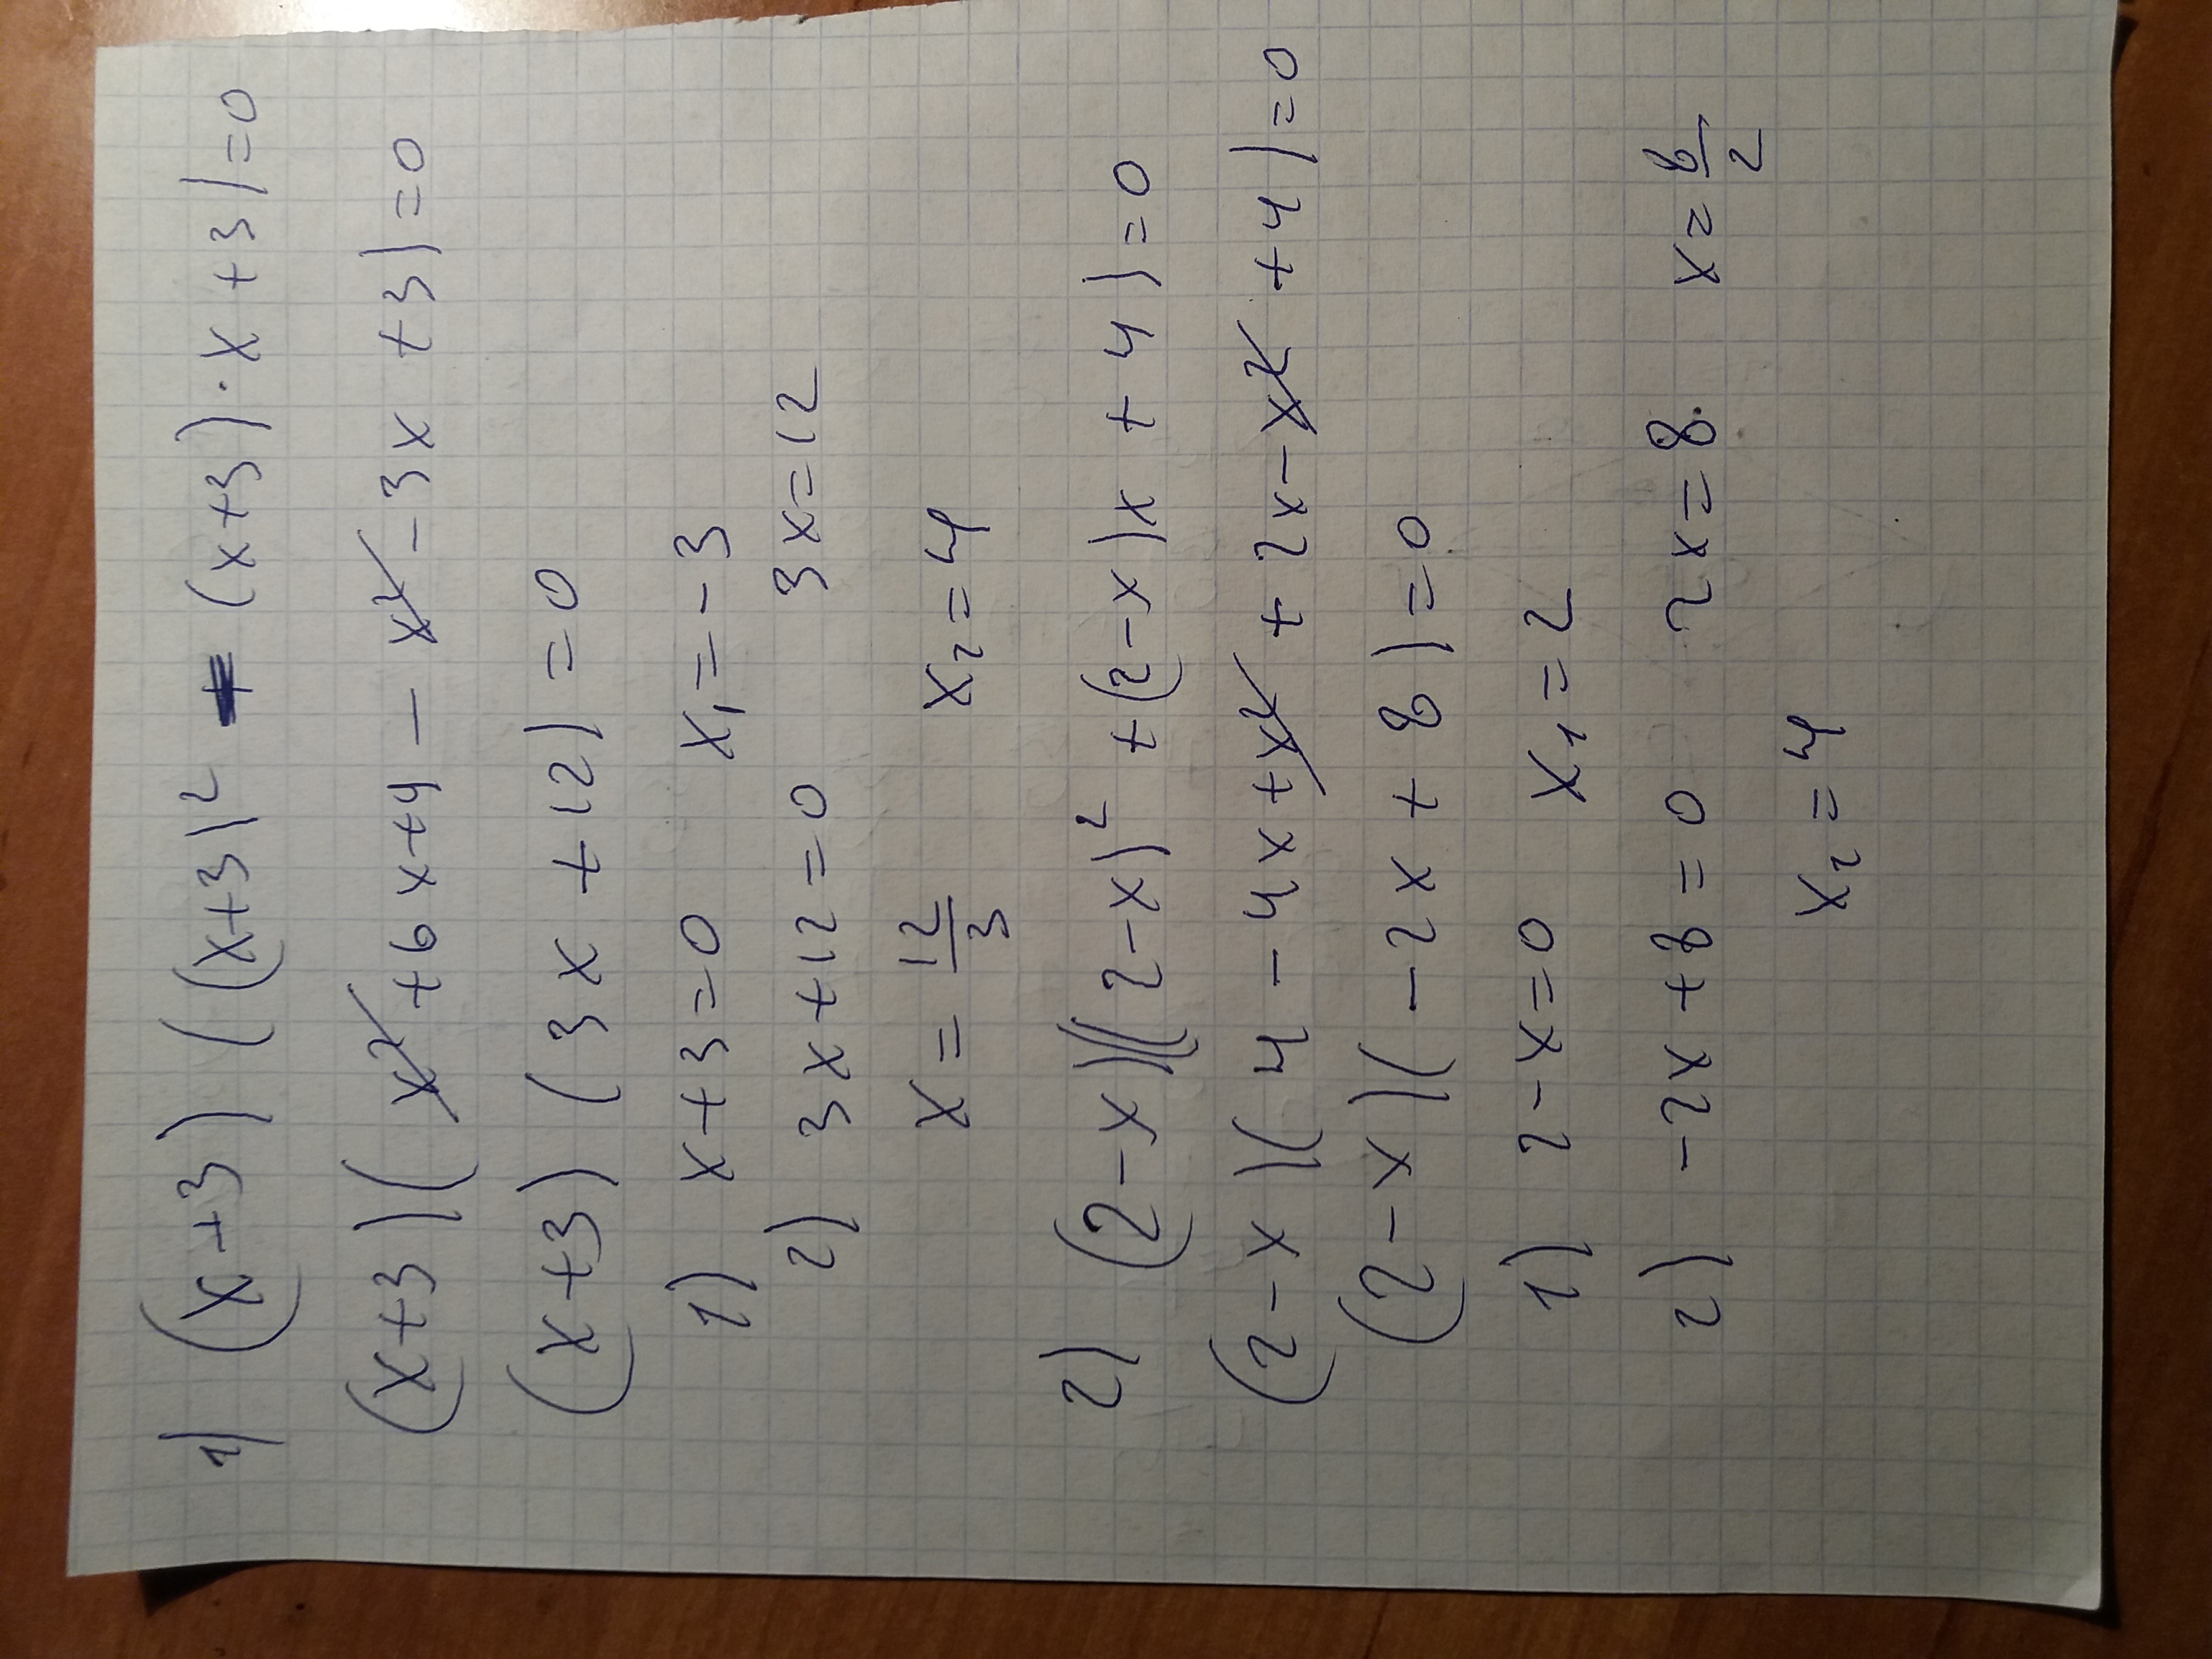 1) (x+3) ((x+3)² - (x+3)·x +3)=0
(x+3)(x²+6x+9 - x²-3x +3)=0
(x+3) (3x +12)=0
1) x+3=0 x₁=-3
2) 3x+12=0 3x=12
x = 12/3 x₂=4
2) (2-x)((2-x)² +(2-x)x + 4)=0
(2-x)(4 - 4x+x² + 2x-x² +4)=0
(2-x)(-2x + 8)=0
1) 2-x=0 x₁=2
2) -2x+8=0 2x=8 x=8/2
x₂=4